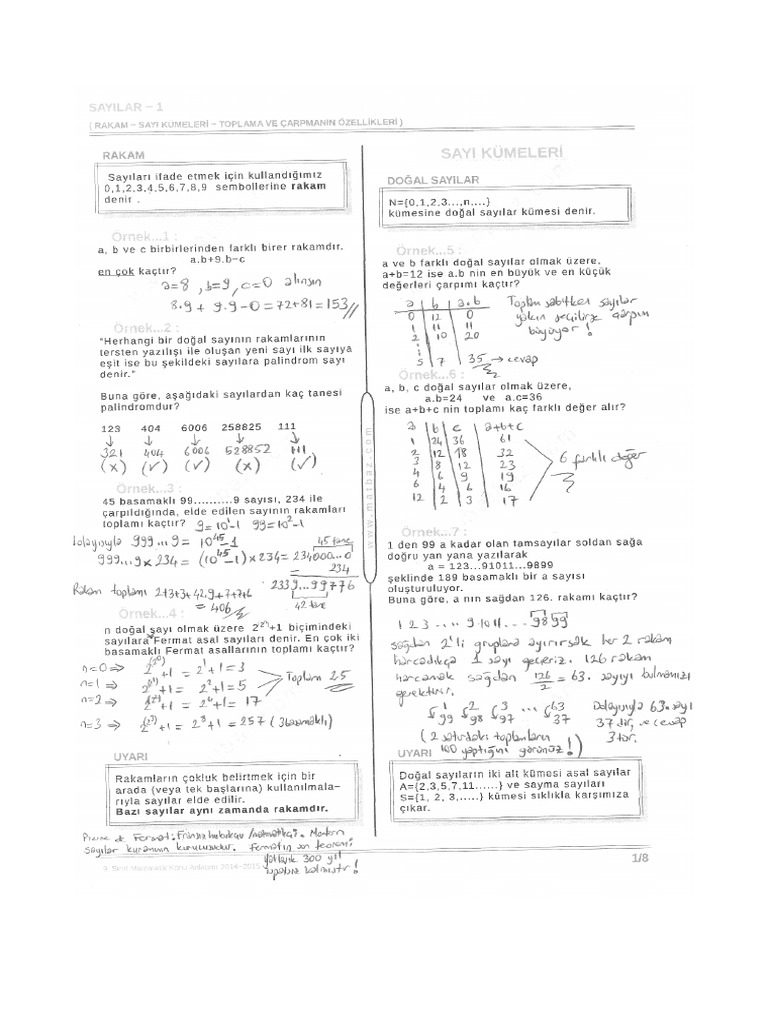 SAYILAR – 1
( RAKAM – SAYI KÜMELERİ – TOPLAMA VE ÇARPMANIN ÖZELLİKLERİ )
RAKAM
Sayıları ifade etmek için kullandığımız
0,1,2,3,4,5,6,7,8,9 sembollerine rakam
denir .
Örnek...1 :
a, b ve c birbirlerinden farklı birer rakamdır.
a.b+9.b–c
en çok kaçtır?
a=8 , b=9 , c=0 alınsın
8.9 + 9.9 – 0 = 72+81 = 153//
Örnek...2 :
"Herhangi bir doğal sayının rakamlarının
tersten yazılışı ile oluşan yeni sayı ilk sayıya
eşit ise bu şekildeki sayılara palindrom sayı
denir."
Buna göre, aşağıdaki sayılardan kaç tanesi
palindromdur?
123 404 6006 258825 111
↓ ↓ ↓ ↓ ↓
321 404 6006 528852 111
(x) (✓) (✓) (x) (✓)
Örnek...3 :
45 basamaklı 99..........9 sayısı, 234 ile
çarpıldığında, elde edilen sayının rakamları
toplamı kaçtır? 9=10¹-1 99=10²-1
dolayısıyla 999...9 = 10⁴⁵-1
45 tane
999...9 x 234 = (10⁴⁵-1) x 234 = 234000...0
– 234
2339...99776
42 tane
Rakam toplamı 2+3+3+42.9+7+7+6
= 406
Örnek...4 :
n doğal sayı olmak üzere 2^(2^n)+1 biçimindeki
sayılara Fermat asal sayıları denir. En çok iki
basamaklı Fermat asallarının toplamı kaçtır?
n=0 ⇒ 2^(2^0)+1 = 2¹+1 = 3
n=1 ⇒ 2^(2^1)+1 = 2²+1 = 5
Toplam 25
n=2 ⇒ 2^(2^2)+1 = 2⁴+1 = 17
n=3 ⇒ 2^(2^3)+1 = 2⁸+1 = 257 (3 basamaklı)
UYARI
Rakamların çokluk belirtmek için bir
arada (veya tek başlarına) kullanılmala-
rıyla sayılar elde edilir.
Bazı sayılar aynı zamanda rakamdır.
Pierre de Fermat: Fransız hukukçu/matematikçi. Modern
sayılar kuramının kurucusudur. Fermat'ın son teoremi
yaklaşık 300 yıl
ispatsız kalmıştır!
9. Sınıf Matematik Konu Anlatımı 2014–2015
www.matbaz.com
SAYI KÜMELERİ
DOĞAL SAYILAR
N={0,1,2,3...,n,...}
kümesine doğal sayılar kümesi denir.
Örnek...5 :
a ve b farklı doğal sayılar olmak üzere,
a+b=12 ise a.b nin en büyük ve en küçük
değerleri çarpımı kaçtır?
a b a.b
0 12 0
1 11 11
2 10 20
5 7 35 → cevap
Toplam sabitken sayılar
yakın seçilirse çarpım
büyüyor!
Örnek...6 :
a, b, c doğal sayılar olmak üzere,
a.b=24 ve a.c=36
ise a+b+c nin toplamı kaç farklı değer alır?
a b c a+b+c
1 24 36 61
2 12 18 32
3 8 12 23
4 6 9 19
6 4 6 16
12 2 3 17
6 farklı değer
Örnek...7 :
1 den 99 a kadar olan tamsayılar soldan sağa
doğru yan yana yazılarak
a = 123...91011...9899
şeklinde 189 basamaklı bir a sayısı
oluşturuluyor.
Buna göre, a nın sağdan 126. rakamı kaçtır?
1 2 3 ... 9 10 11 ... 98 99
sağdan 2'li gruplara ayırırsak her 2 rakam
harcadıkça 1 sayı geçeriz. 126 rakam
harcamak sağdan 126/2 = 63. sayıyı bulmamızı
gerektirir.
1 2 3 ... 63
99 98 97 37
Dolayısıyla 63. sayı
37 dir, ve cevap
3 tür.
( 2 satırdaki toplamların
100 yaptığını görünüz! )
UYARI
Doğal sayıların iki alt kümesi asal sayılar
A={2,3,5,7,11......} ve sayma sayıları
S={1, 2, 3,.....} kümesi sıklıkla karşımıza
çıkar.
1/8